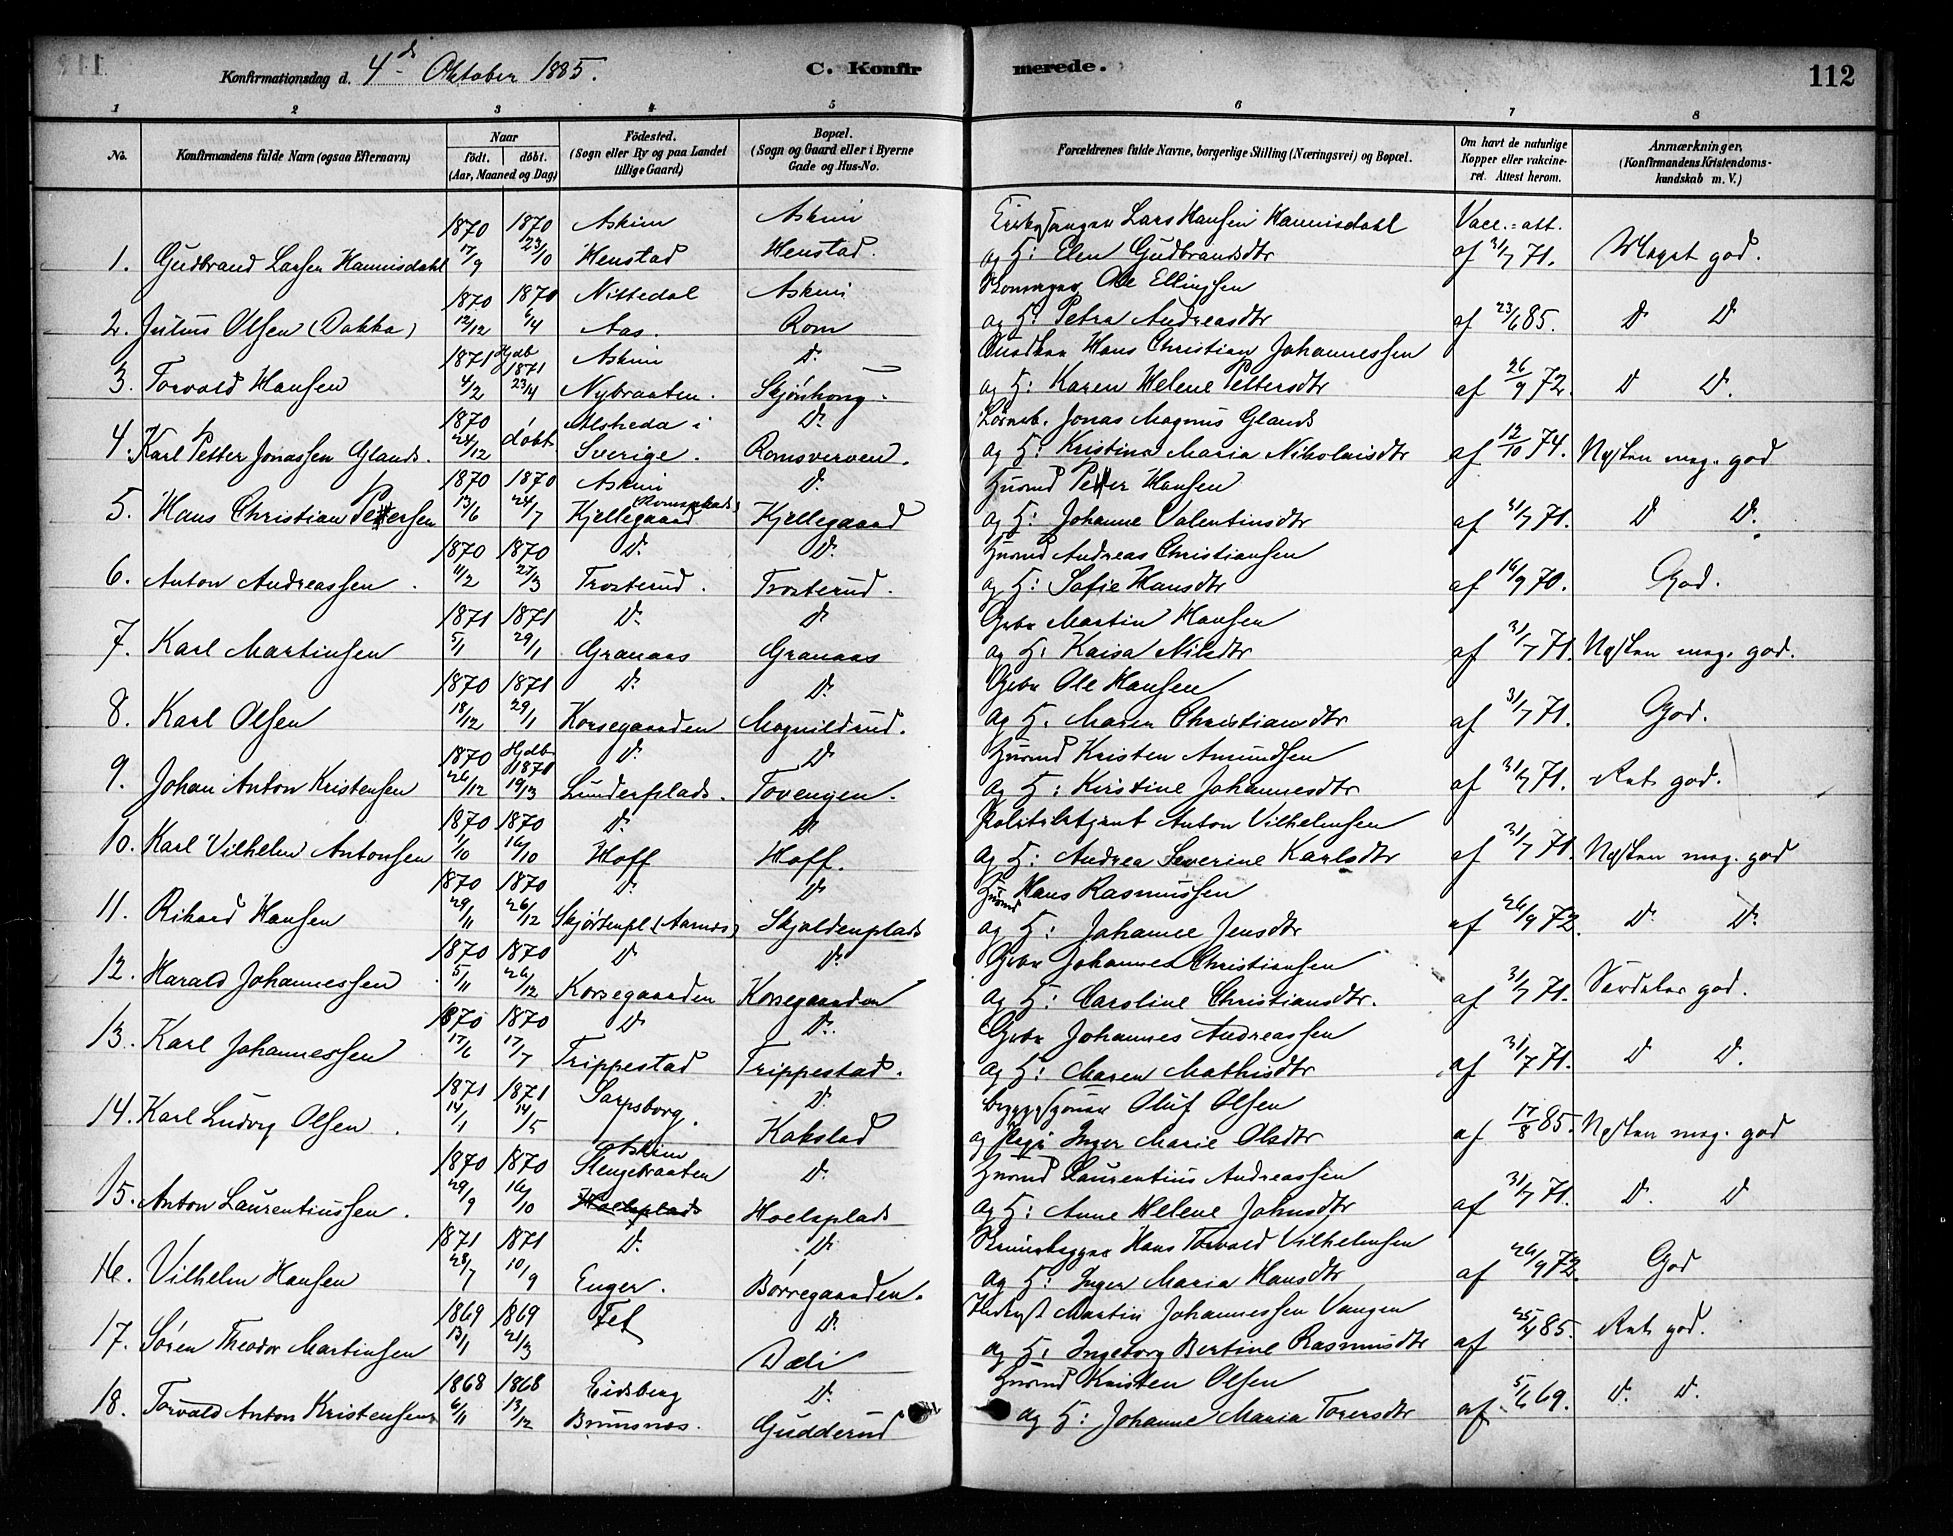 Konfirmationsdag d. 4de Oktober 1885. C. Konfirmerede. 112
1 2 3 4 5 6 7 8
No. Konfirmandens fulde Navn (ogsaa Efternavn) Naar født. døbt. (Aar, Maaned og Dag) Fødested. (Sogn eller By og paa Landet tillige Gaard) Bopæl. (Sogn og Gaard eller i Byerne Gade og Hus-No. Forældrenes fulde Navne, borgerlige Stilling (Næringsvei) og Bopæl. Om havt de naturlige Kopper eller vakcineret. Attest herom. Anmærkninger, (Konfirmandens Kristendomskundskab m. V.)
1870 1870 Askim Askim Kirkesanger Lars Hansen Hannisdahl Vacc. att.
1. Gudbrand Larsen Hannisdahl 17/9 23/10 Henstad Henstad. og H: Elen Gudbrandsdtr af 31/7 71. Meget god.
1870 1870 Nittedal Askim Ole Ellingsen
2. Julius Olsen (Dakka) 12/12 6/4 Aas. Rom og H: Petra Andreasdtr af 23/6 85. D D
1871 Hjdb 1871 Askim D. Hans Christian Johannessen
3. Torvald Hansen 4/2 23/4 Nybraaten. Skjønhoug. og H: Karen Helene Pettersdtr af 26/9 72. D D.
1870 Alsheda i D. Jonas Magnus Glands
4. Karl Petter Jonassen Glands. 24/12 døbt Sverige. Romsverven. og H: Kristina Maria Nikolaisdtr af 12/10 74. Næsten meg. god
1870 1870 Askim D. Husmd Petter Hansen
5. Hans Christian Pettersen 13/6 24/7 Kjellegaard (Romsplads) Kjellegaard og H: Johanne Valentinsdtr af 31/7 71. D D.
1870 1870 D. D. Husmd Andreas Christiansen
6. Anton Andreassen. 11/2 27/3 Trosterud. Trosterud. og H: Sofie Hansdtr af 16/9 70. God.
1871 1871 D. D Gbr Martin Hansen
7. Karl Martinsen 5/1 29/1 Granaas Granaas og H: Kaisa Nilsdtr af 31/7 71. Næsten meg. god.
1870 1871 D. D. Gbr Ole Hansen
8. Karl Olsen 18/12 29/1 Korsegaarden Magnildrud. og H. Maren Christiansdtr af 31/7 71. God.
1870 Hjdb 1871 D. D Husmd Kristen Amundsen
9. Johan Anton Kristensen 26/12 19/3 Lunderplads. Tovengen. og H: Kirstine Johannesdtr af 31/7 71. Ret god.
1870 1870 D. D. Politibetjent Anton Vilhelmsen
10. Karl Vilhelm Antonsen 1/10 16/10 Hoff Hoff. og H: Andrea Severine Karlsdtr af 31/7 71. Næsten meg. god
1870 1870 D. D Husmd Hans Rasmussen
11. Rikard Hansen 29/11 26/12 Skjørtenpl (Aarnes) Skjoldenplads og H: Johanne Jensdtr af 26/9 72. D. D.
1870 1870 D D. Gbr Johannes Christiansen
12. Harald Johannessen 5/11 26/12 Korsegaarden Korsegaarden og H: Caroline Christiansdtr. af 31/7 71. Særdeles god.
1870 1870 D D. Gbr Johannes Andreassen
13. Karl Johannessen 17/6 17/7 Trippestad Trippestad. og H: Maren Mathisdtr af 31/7 71. D D.
1871 1871 Sarpsborg. D. Oluf Olsen
14. Karl Ludvig Olsen. 14/1 14/5 Kakstad og Pige Inger Marie Olsdtr af 17/8 85. Næsten meg. god
1870 1870 Askim Stengebraaten D. Husmd Laurentius Andreassen
15. Anton Laurentiussen. 29/9 16/10 Hoelsplads Hoelsplads og H: Anne Helene Johnsdtr af 31/7 71. D. D
1871 1871 D. D. Hans Torvald Vilhelmsen
16. Vilhelm Hansen 28/7 10/9 Enger. Børregaarden. og H: Inger Maria Hansdtr af 26/9 72. God
1869 1869 Fet D. Inderst Martin Johannessen Vangen
17. Søren Theodor Martinsen 13/1 21/3 Dæli og H: Ingeborg Bertine Rasmusdtr af 25/4 85. Ret god.
1868 1868 Eidsberg D. Husmd Kristen Olsen
18. Torvald Anton Kristensen 6/11 13/12 Brunsnæs. Gudderud og H: Johanne Maria Torersdtr af 5/6 69. D. D.